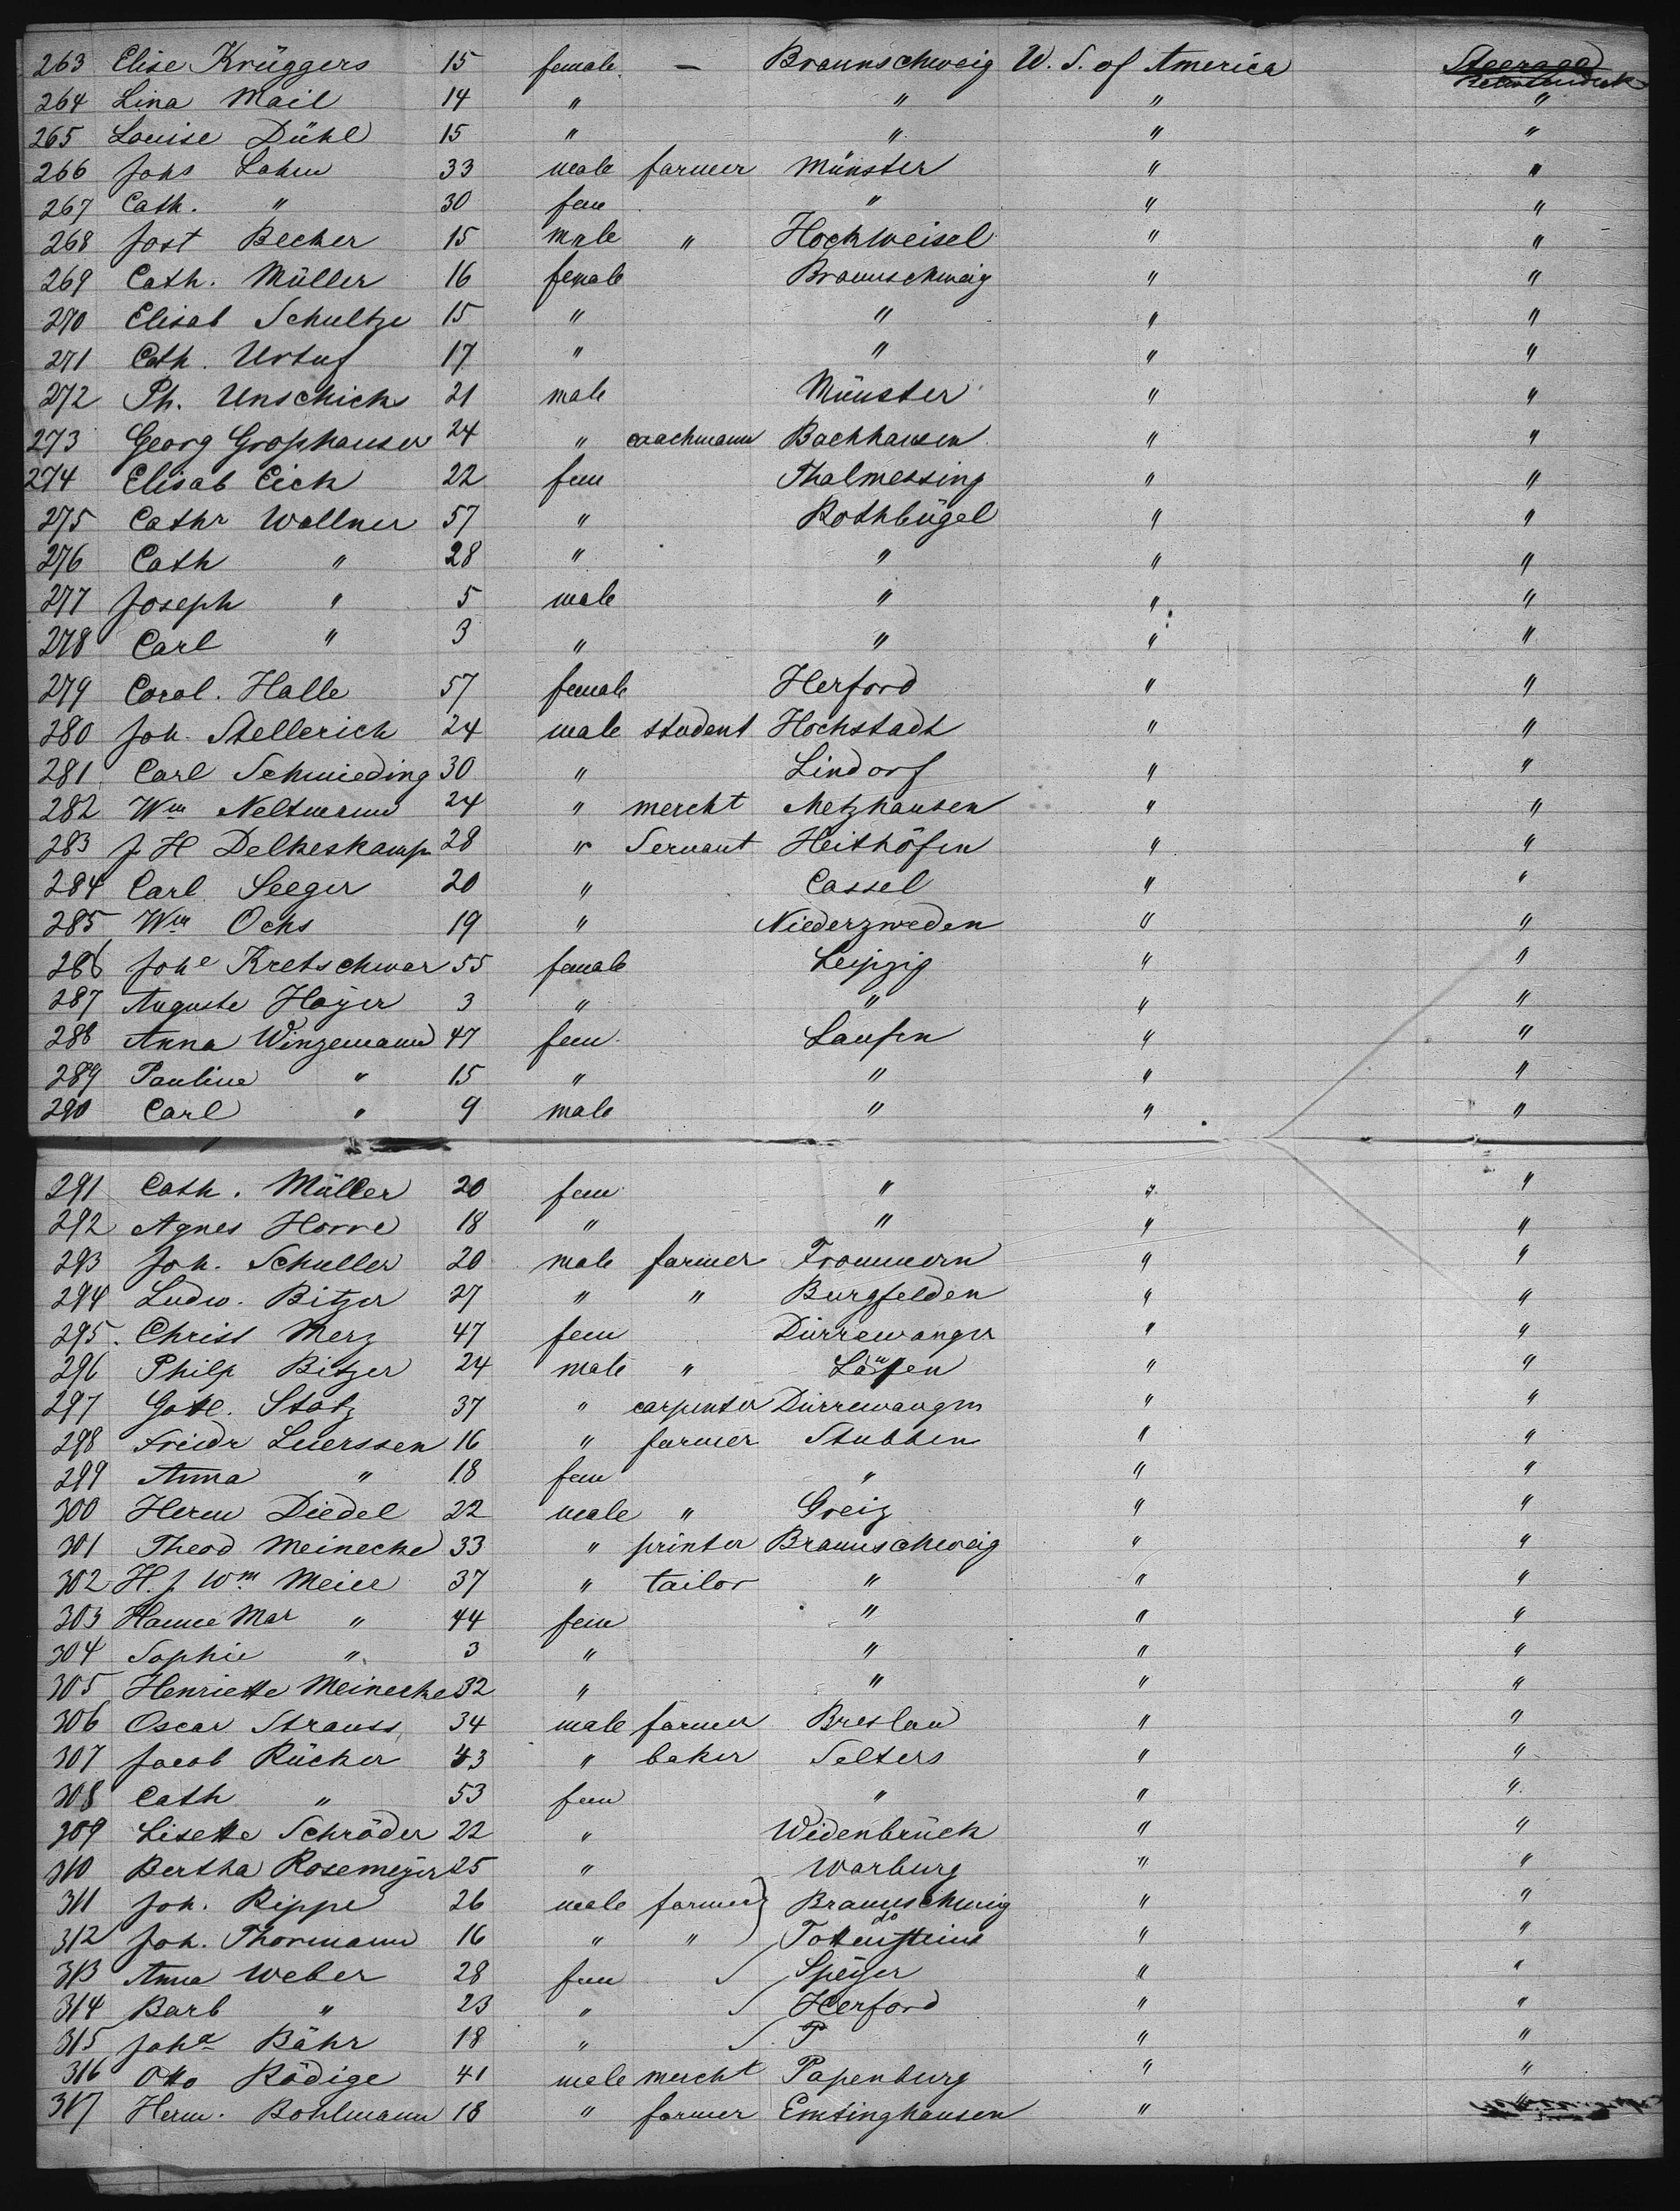 263 Elise Krüggers 15 female — Braunschweig U. S. of America Steerage
264 Lina Mail 14 " " " "
265 Louise Dühl 15 " " " "
266 Johs Lahm 33 male farmer Münster " "
267 Cath. " 30 fem " " "
268 Jost Becker 15 male " Hochweisel " "
269 Cath. Müller 16 female Braunschweig " "
270 Elisab Schultze 15 " " " "
271 Cath. Urtuf 17 " " " "
272 Ph. Unschick 21 male Münster " "
273 Georg Grosphauser 24 " coachmann Bachhausen " "
274 Elisab Eich 22 fem Thalmessing " "
275 Cathr Wallner 57 " Rothbügel " "
276 Cath " 28 " " " "
277 Joseph " 5 male " " "
278 Carl " 3 " " " "
279 Carol. Halle 57 female Herford " "
280 Joh. Stellerich 24 male student Hochstadt " "
281 Carl Schmieding 30 " Lindorf " "
282 Wm Neltmann 24 " mercht Metzhausen " "
283 J H Delkeskamp 28 " Servant Heithöfen " "
284 Carl Seeger 20 " Cassel " "
285 Wm Ochs 19 " Niederzweden " "
286 Johe Kretschmar 55 female Leipzig " "
287 Auguste Hoyer 3 " " " "
288 Anna Winzemann 47 fem. Laufen " "
289 Pauline " 15 " " " "
290 Carl " 9 male " " "
291 Cath. Müller 20 fem " " "
292 Agnes Horre 18 " " " "
293 Joh. Schuller 20 male farmer Frommern " "
294 Ludw. Bitzer 27 " " Burgfelden " "
295. Christ Merz 47 fem Dürrewanger " "
296 Philp Bitzer 24 male " Laufen " "
297 Gottl. Stotz 37 " carpenter Dürrewangen " "
298 Friedr Luerssen 16 " farmer Stubben " "
299 Anna " 18 fem " " "
300 Herm Diedel 22 male " Greiz " "
301 Theod Meinecke 33 " printer Braunschweig " "
302 H. J. Wm Meier 37 " tailor " " "
303 Hanne Mar " 44 fem " " "
304 Sophie " 3 " " " "
305 Henriette Meinecke 32 " " " "
306 Oscar Strauss 34 male farmer Breslau " "
307 Jacob Rücker 43 " baker Selters " "
308 Cath " 53 fem " " "
309 Lisette Schröder 22 " Widenbrück " "
310 Bertha Rosemeyer 25 " Warburg " "
311 Joh. Rippe 26 male farmer } Braunschweig " "
do
312 Joh. Thormann 16 " " " "
313 Anna Weber 28 fem Speyer " "
314 Barb " 23 " Herford " "
315 Joha Bähr 18 " P " "
316 Otto Rödige 41 male mercht Papenburg " "
317 Herm. Bohlmann 18 " farmer Emtinghausen "